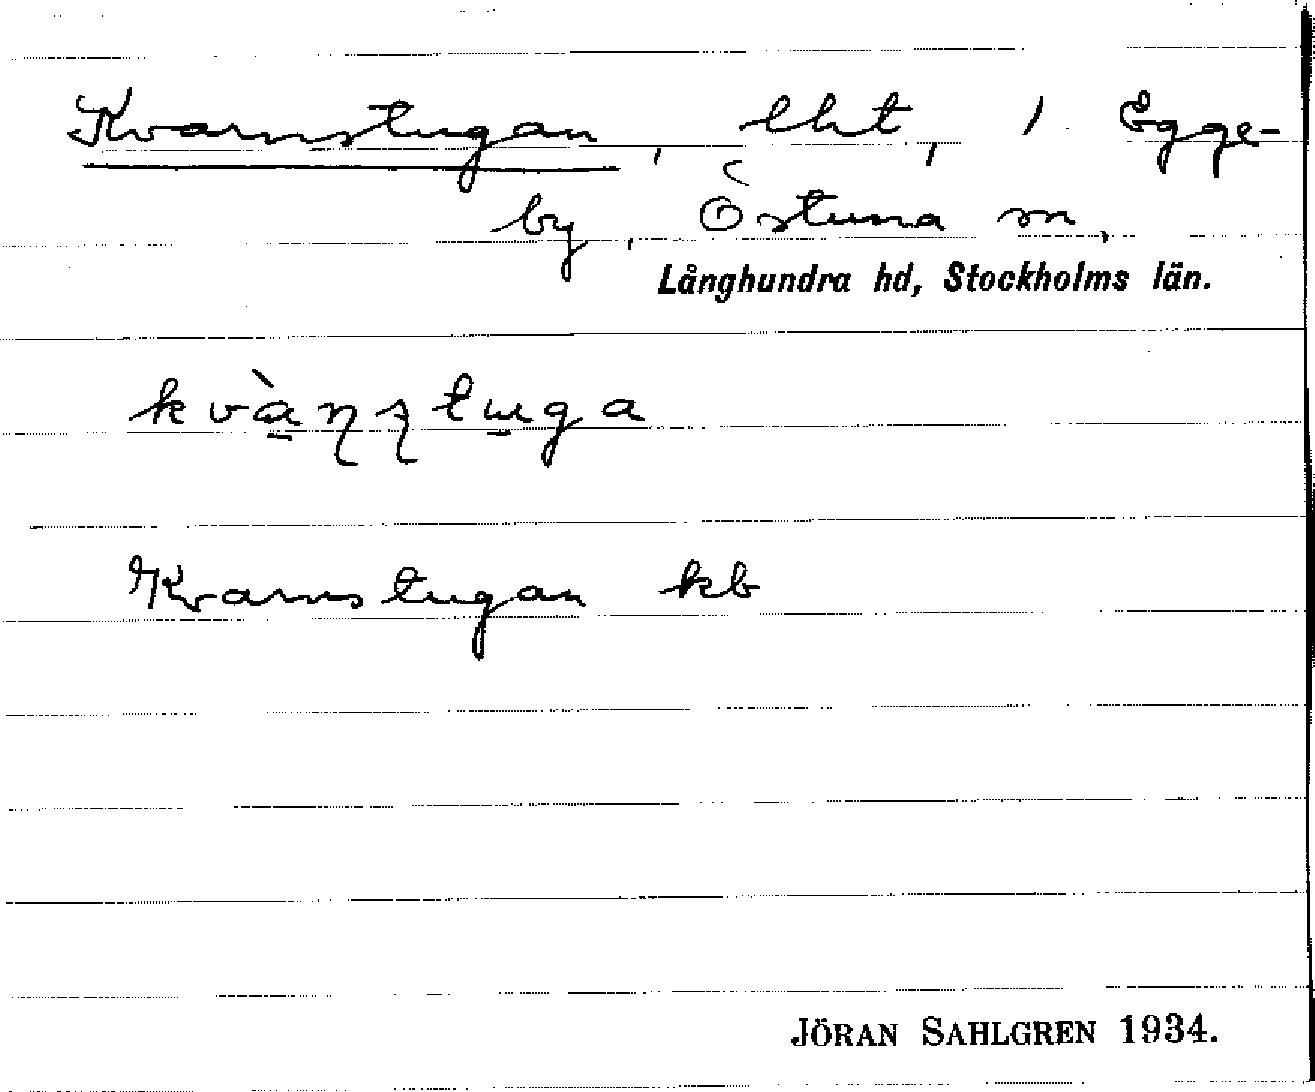 Kvarnstugan, lht, i Egge-
by, Östuna sn,
Långhundra hd, Stockholms län.
kvàɳʂtɯga
Kvarnstugan kb
JÖRAN SAHLGREN 1934.